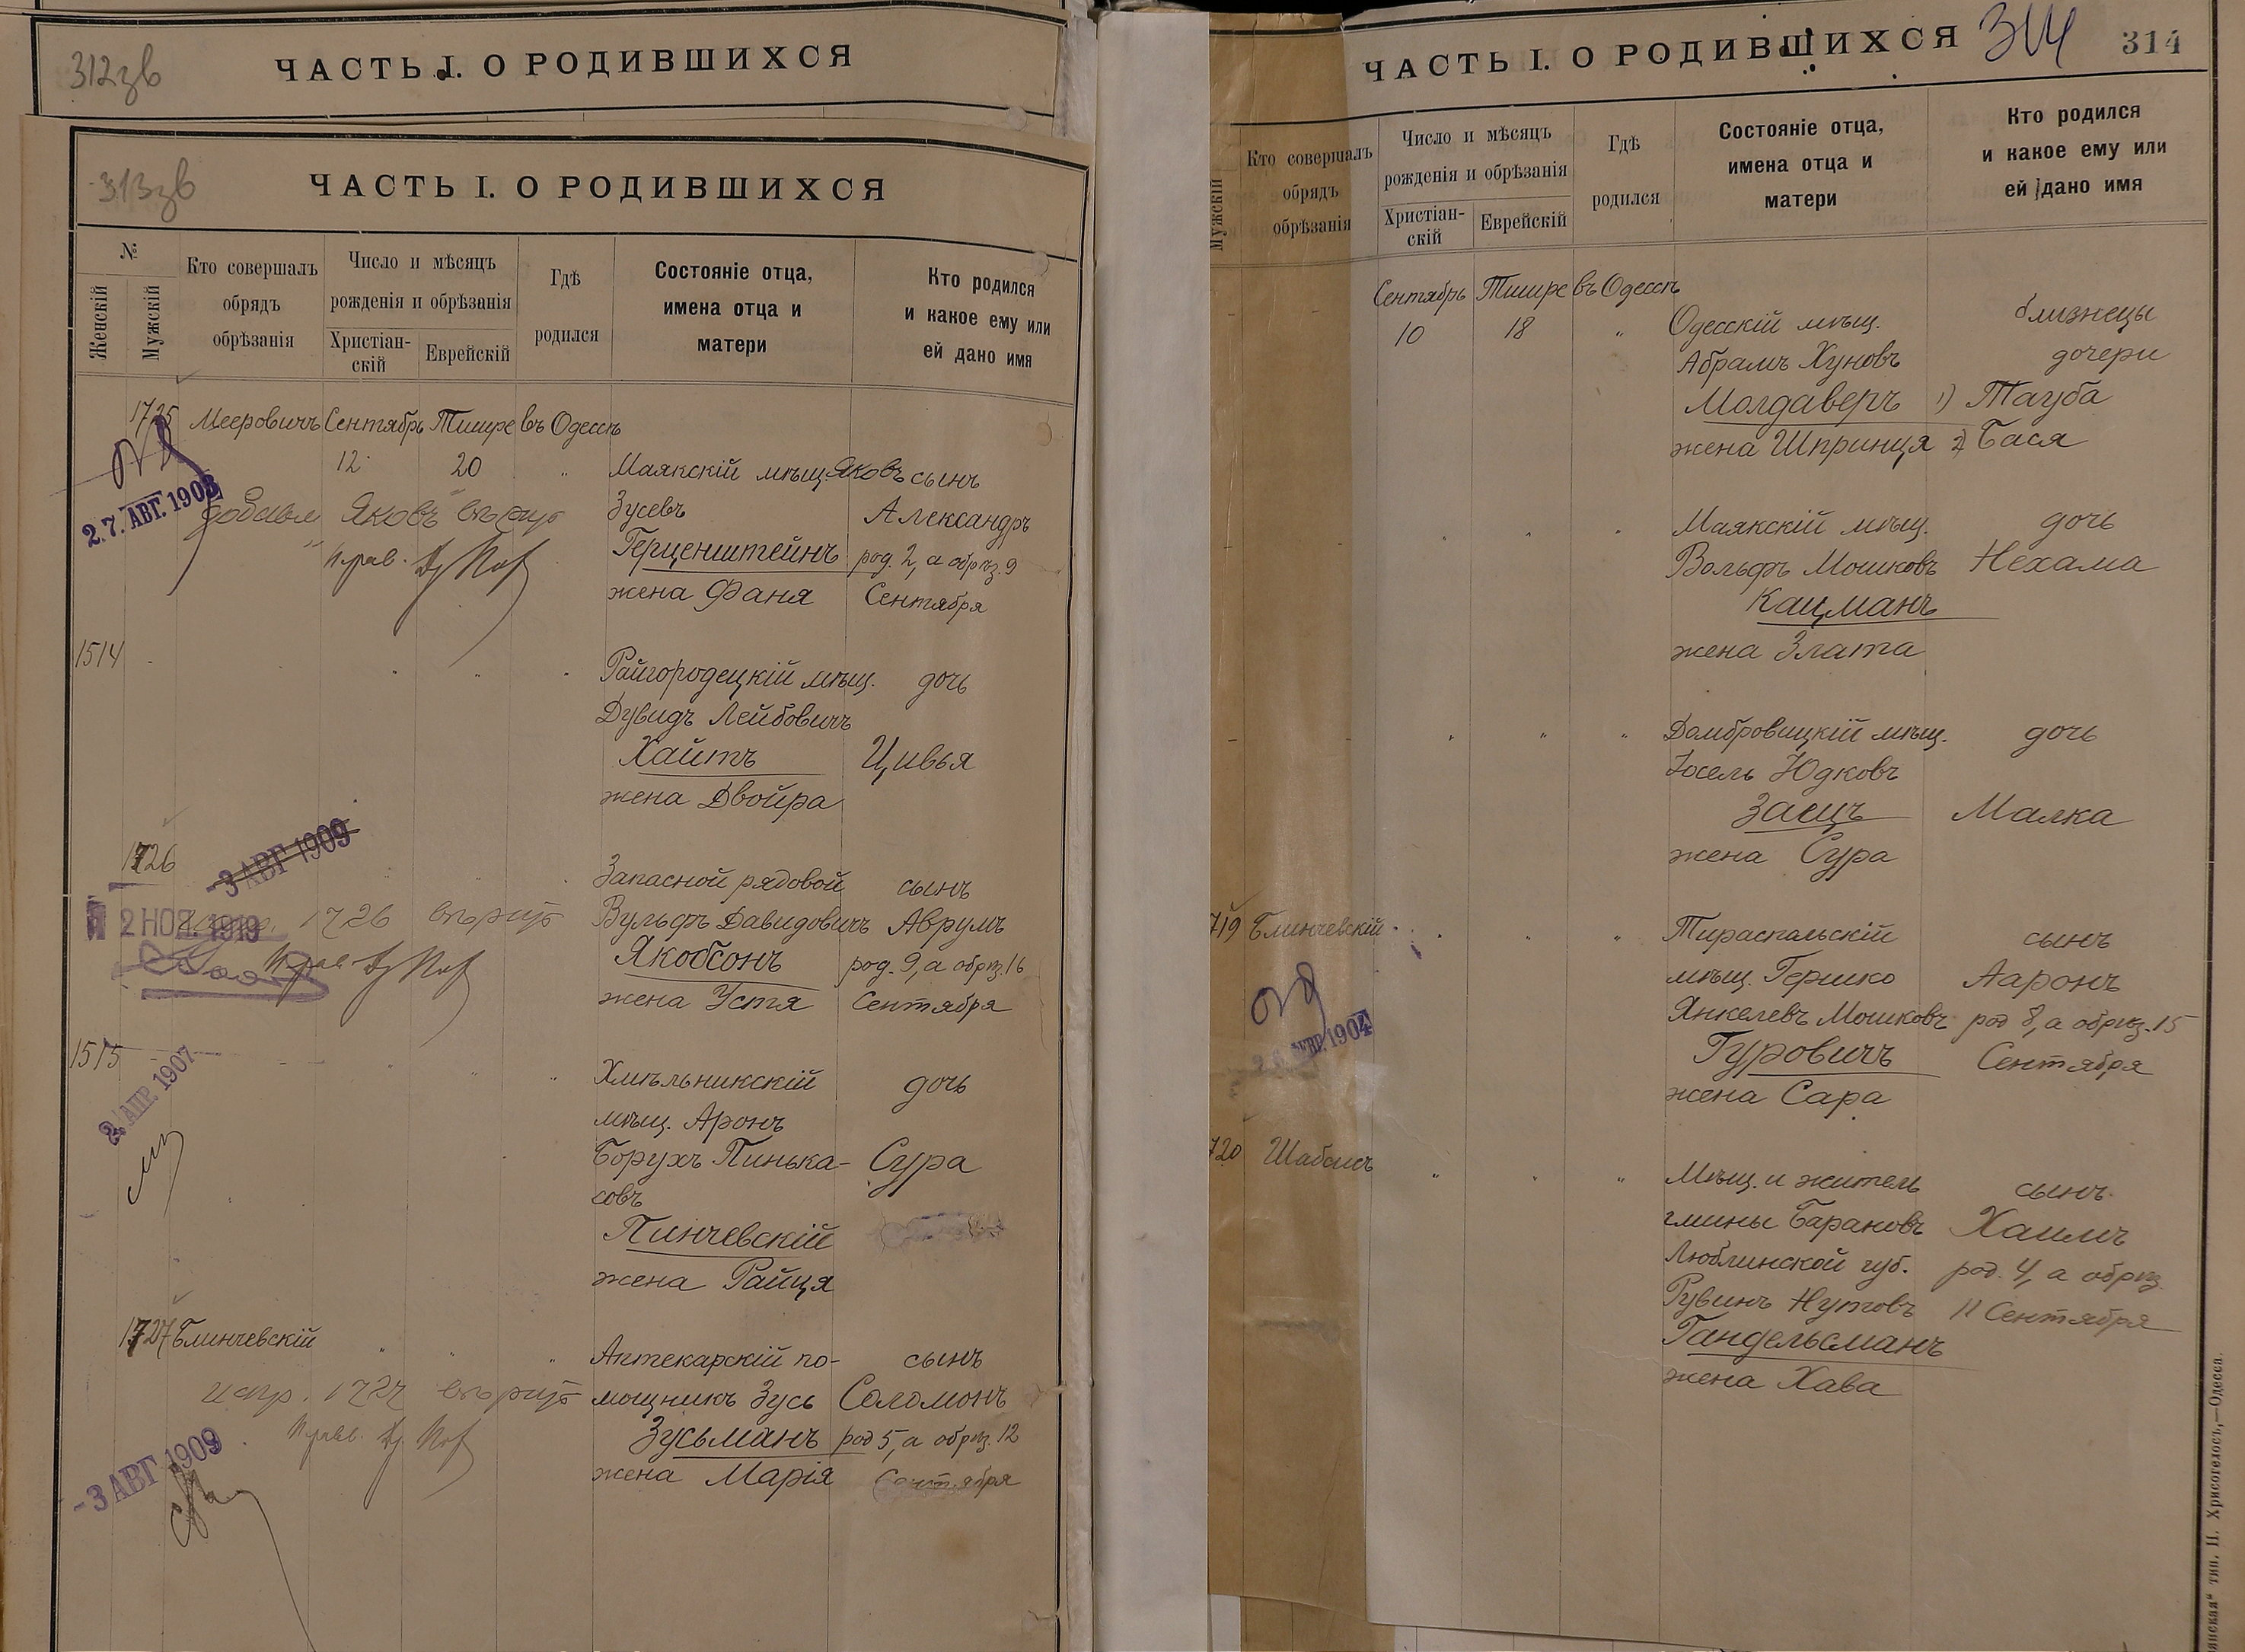 312зв
ЧАСТЬ I. О РОДИВШИХСЯ
313зв
ЧАСТЬ I. О РОДИВШИХСЯ
№
Женскій
Мужскій
Кто совершалъ
обрядъ
обрѣзанія
Число и мѣсяцъ
рожденія и обрѣзанія
Христіан-
скій
Еврейскій
Гдѣ
родился
Состояніе отца,
имена отца и
матери
Кто родился
и какое ему или
ей дано имя
1725 Мееровичъ Сентябрь Тишре въ Одессѣ
12 20 " Маякскій мѣщ. Яковъ сынъ
27. АВГ. 1903
Яковъ вѣрно Зусевъ Александръ
Герценштейнъ род. 2, а обрѣз. 9
жена Фаня Сентября
1514 - " " " Райгородецкій мѣщ. дочь
Дувидъ Лейбовичъ
Хаитъ Цивья
жена Двойра
1726
- 3 АВГ 1909
Запасной рядовой сынъ
2 НОЯ. 1919
1726 вѣрно Вульфъ Давидовичъ Аврумъ
Якобсонъ род. 9, а обрѣз. 16
жена Устя Сентября
1515
2. АПР. 1907
Хмѣльникскій дочь
мѣщ. Аронъ
Борухъ Пинька- Сура
совъ
Пинчевскій
жена Райця
1727 Блинчевскій " " " Аптекарскій по- сынъ
испр. 1727 вѣрно мощникъ Зусь Соломонъ
Зусьманъ род 5, а обрѣз. 12
- 3 АВГ 1909
жена Марія Сентября
ЧАСТЬ I. О РОДИВШИХСЯ
314
314
Мужскій
Кто совершалъ
обрядъ
обрѣзанія
Число и мѣсяцъ
рожденія и обрѣзанія
Христіан-
скій
Еврейскій
Гдѣ
родился
Состояніе отца,
имена отца и
матери
Кто родился
и какое ему или
ей дано имя
Сентябрь Тишре въ Одессѣ
10 18 " Одесскій мѣщ. близнецы
Абрамъ Хуновъ дочери
Молдаверъ 1) Тауба
жена Шпринця 2) Бася
" " " Маякскій мѣщ. дочь
Вольфъ Мошковъ Нехама
Кацманъ
жена Злата
" " " Домбровицкій мѣщ. дочь
Іосель Юдковъ
Заецъ Малка
жена Сура
719 Блинчевскій " " " Тираспальскій сынъ
мѣщ. Гершко Ааронъ
Янкелевъ Мошковъ род 8, а обрѣз. 15
1904
Гуровичъ Сентября
жена Сара
720 Шабсисъ " " " Мѣщ. и житель сынъ
гмины Барановъ Хаимъ
Люблинской губ. род. 4, а обрѣз.
Рувинъ Нутовъ 11 Сентября
Гандельсманъ
жена Хава
тип. П. Хрисогелосъ,—Одесса.